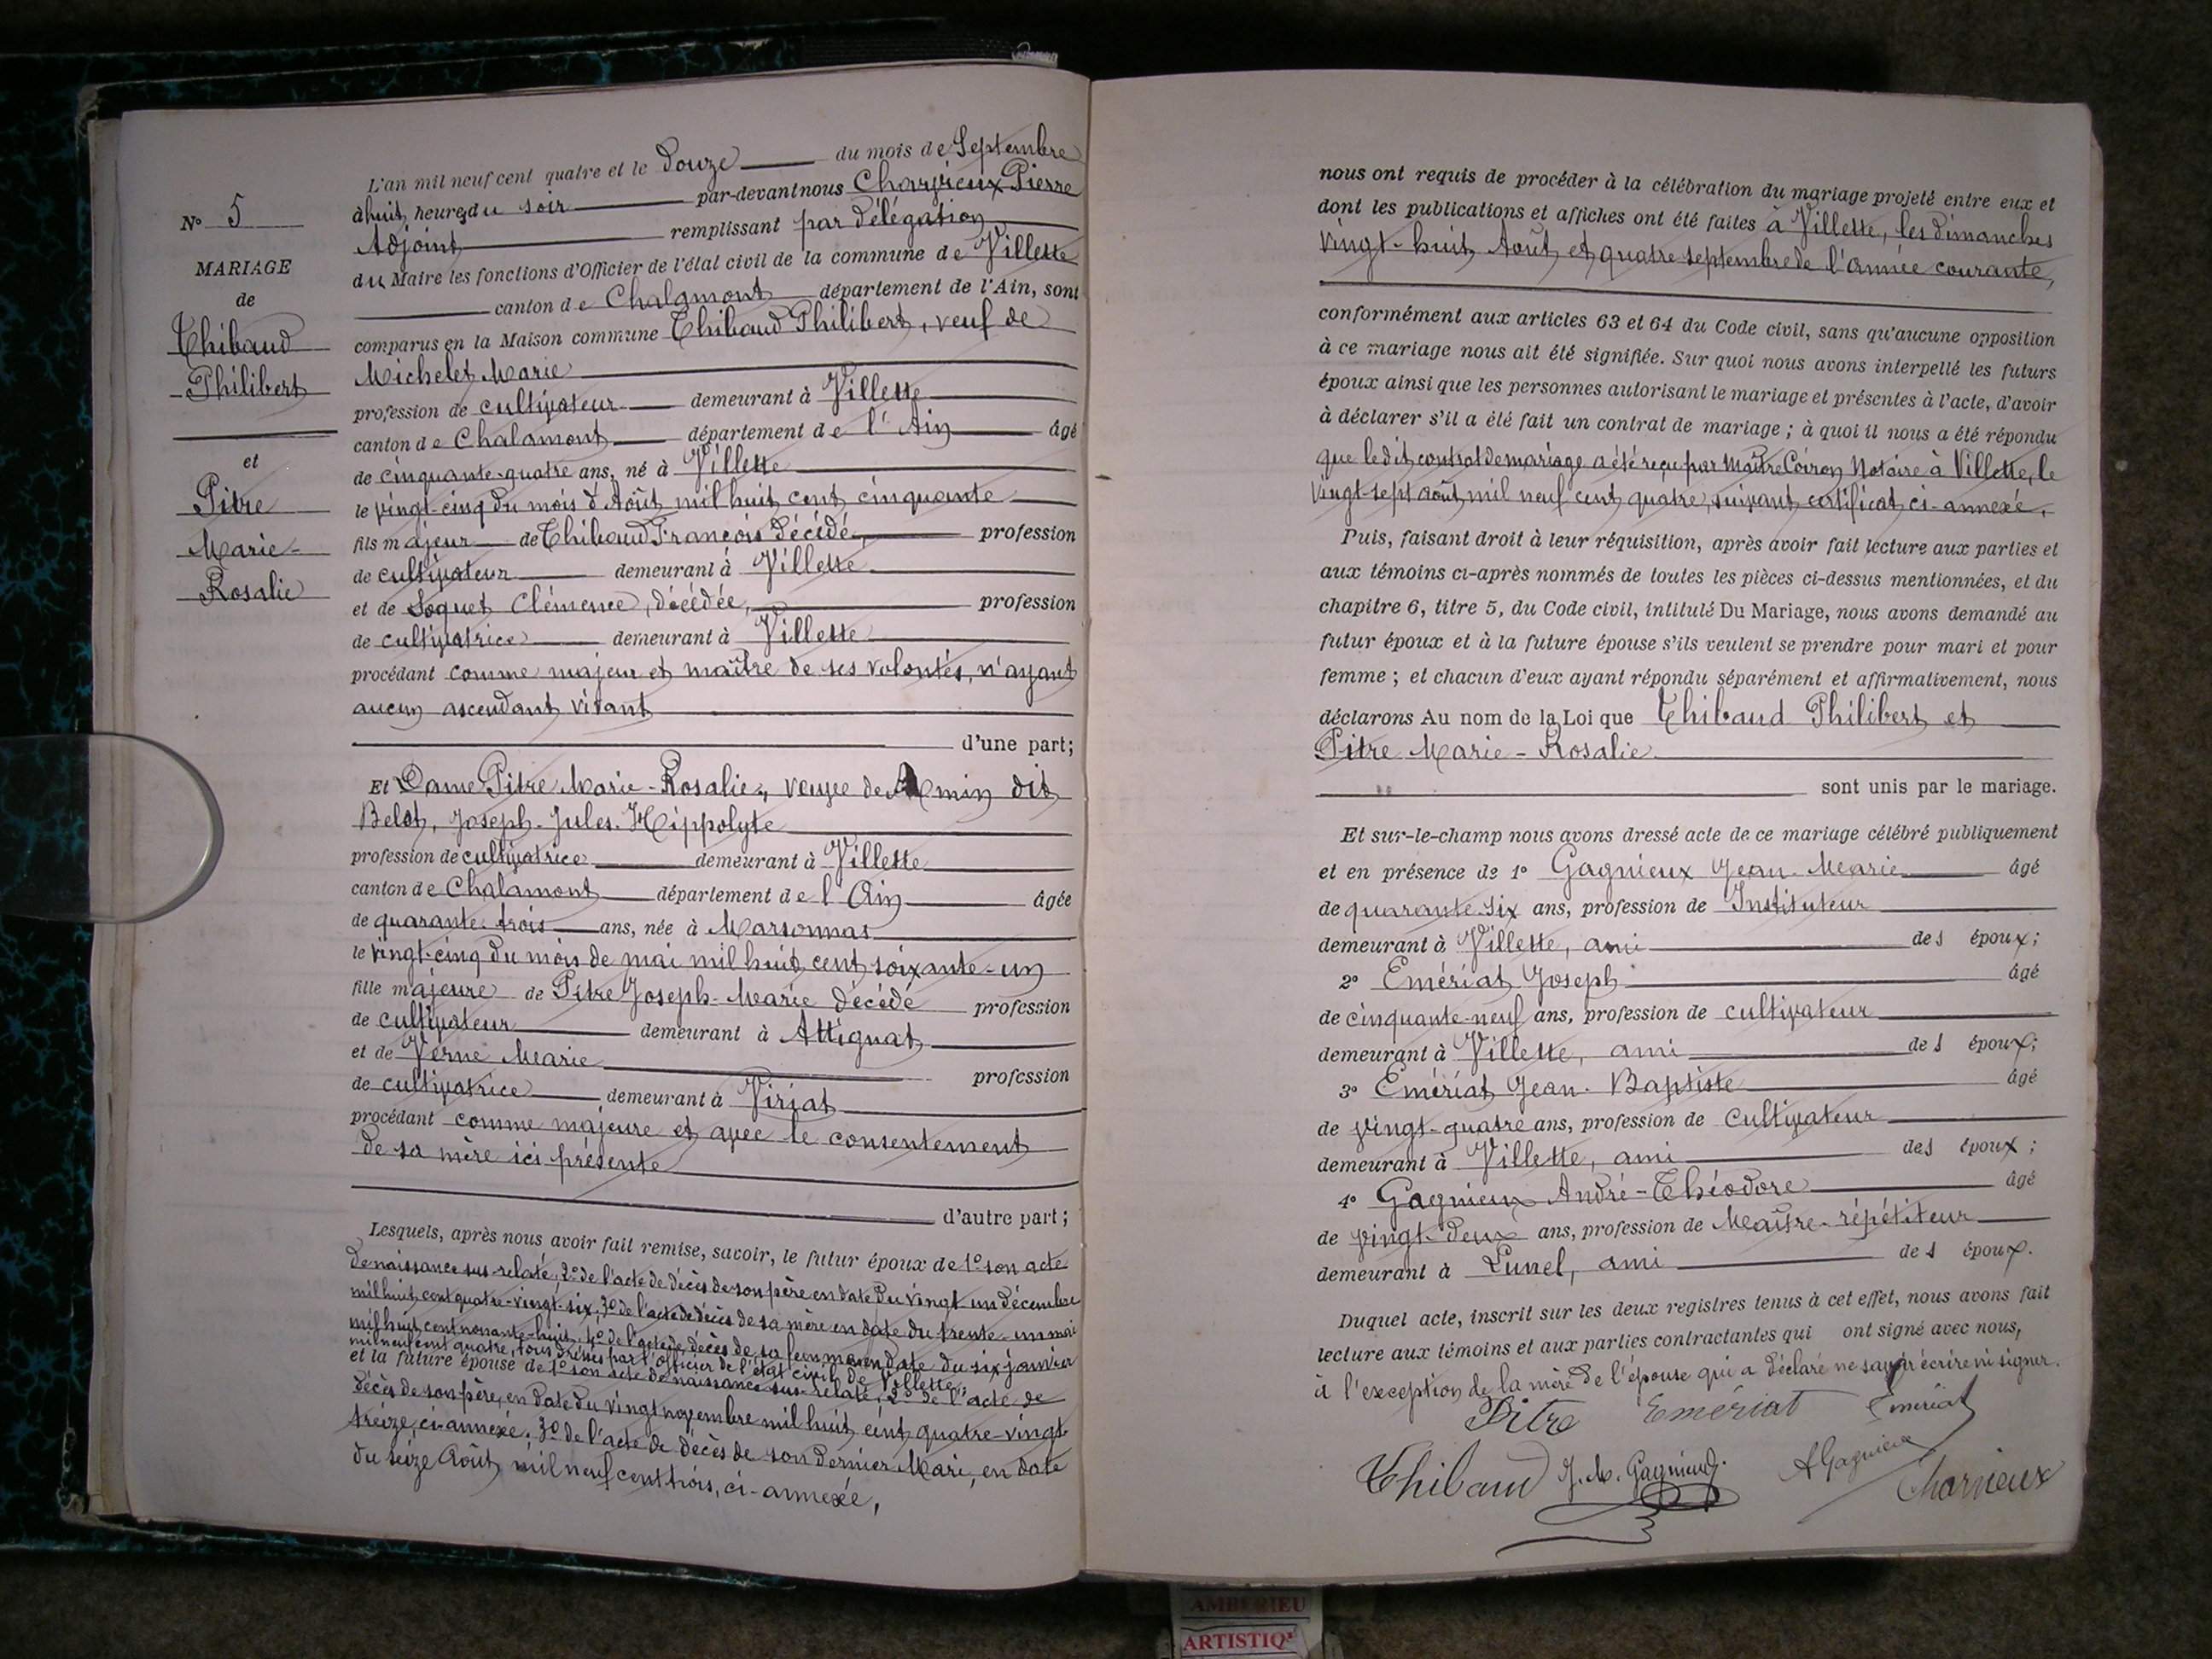 N° 5
MARIAGE
de
Thibaud
Philibert
et
Pitre
Marie-
Rosalie
L'an mil neuf cent quatre et le douze du mois de Septembre
à huit heures du soir par-devant nous Charvieux Pierre
Adjoint remplissant par délégation
du Maire les fonctions d'Officier de l'état civil de la commune de Villette
canton de Chalamont département de l'Ain, sont
comparus en la Maison commune Thibaud Philibert, veuf de
Michelet Marie
profession de cultivateur demeurant à Villette
canton de Chalamont département de l'Ain âgé
de cinquante-quatre ans, né à Villette
le vingt-cinq du mois d'Août mil huit cent cinquante
fils majeur de Thibaud François décédé, profession
de cultivateur demeurant à Villette
et de Soquet Clémence, décédée, profession
de cultivatrice demeurant à Villette
procédant comme majeur et maître de ses volontés, n'ayant
aucun ascendant vivant
d'une part;
Et Dame Pitre Marie-Rosalie, veuve de dit
Belot, Joseph-Jules-Hippolyte
profession de cultivatrice demeurant à Villette
canton de Chalamont département de l'Ain âgée
de quarante-trois ans, née à Marsonnas
le vingt-cinq du mois de mai mil huit cent soixante-un
fille majeure de Pitre Joseph-Marie décédé profession
de cultivateur demeurant à Attignat
et de Verne Marie profession
de cultivatrice demeurant à Viriat
procédant comme majeure et avec le consentement
de sa mère ici présente
d'autre part;
Lesquels, après nous avoir fait remise, savoir, le futur époux de 1° son acte
de naissance sus-relaté; 2° de l'acte de décès de son père en date du vingt-un décembre
mil huit cent quatre-vingt-six; 3° de l'acte de décès de sa mère en date du trente-un mai
mil huit cent nonante-huit; 4° de l'acte de décès de sa femme en date du six janvier
mil neuf cent quatre, tous dressés par l'officier de l'état civil de Villette;
et la future épouse de 1° son acte de naissance sus-relaté; 2° de l'acte de
décès de son père, en date du vingt novembre mil huit cent quatre-vingt
treize, ci-annexé; 3° de l'acte de décès de son dernier Mari, en date
du seize Août mil neuf cent trois, ci-annexé,
nous ont requis de procéder à la célébration du mariage projeté entre eux et
dont les publications et affiches ont été faites à Villette, les dimanches
vingt-huit Août et quatre septembre de l'année courante,
conformément aux articles 63 et 64 du Code civil, sans qu'aucune opposition
à ce mariage nous ait été signifiée. Sur quoi nous avons interpellé les futurs
époux ainsi que les personnes autorisant le mariage et présentes à l'acte, d'avoir
à déclarer s'il a été fait un contrat de mariage; à quoi il nous a été répondu
que le dit contrat de mariage a été reçu par Maître Coiron Notaire à Villette, le
vingt-sept août mil neuf cent quatre, suivant certificat ci-annexé.
Puis, faisant droit à leur réquisition, après avoir fait lecture aux parties et
aux témoins ci-après nommés de toutes les pièces ci-dessus mentionnées, et du
chapitre 6, titre 5, du Code civil, intitulé Du Mariage, nous avons demandé au
futur époux et à la future épouse s'ils veulent se prendre pour mari et pour
femme; et chacun d'eux ayant répondu séparément et affirmativement, nous
déclarons Au nom de la Loi que Thibaud Philibert et
Pitre Marie-Rosalie
sont unis par le mariage.
Et sur-le-champ nous avons dressé acte de ce mariage célébré publiquement
et en présence de 1° Gagnieux Jean-Marie âgé
de quarante-six ans, profession de Instituteur
demeurant à Villette, ami des époux;
2° Emériat Joseph âgé
de cinquante-neuf ans, profession de cultivateur
demeurant à Villette, ami des époux;
3° Emériat Jean-Baptiste âgé
de vingt-quatre ans, profession de cultivateur
demeurant à Villette, ami des époux;
4° Gagnieux André-Théodore âgé
de vingt-deux ans, profession de Maître-répétiteur
demeurant à Lunel, ami des époux.
Duquel acte, inscrit sur les deux registres tenus à cet effet, nous avons fait
lecture aux témoins et aux parties contractantes qui ont signé avec nous,
à l'exception de la mère de l'épouse qui a déclaré ne savoir écrire ni signer.
Pitre Emériat Emériat
Thibaud J. M. Gagnieux A Gagnieux Charvieux
AMBERIEU
ARTISTIQ